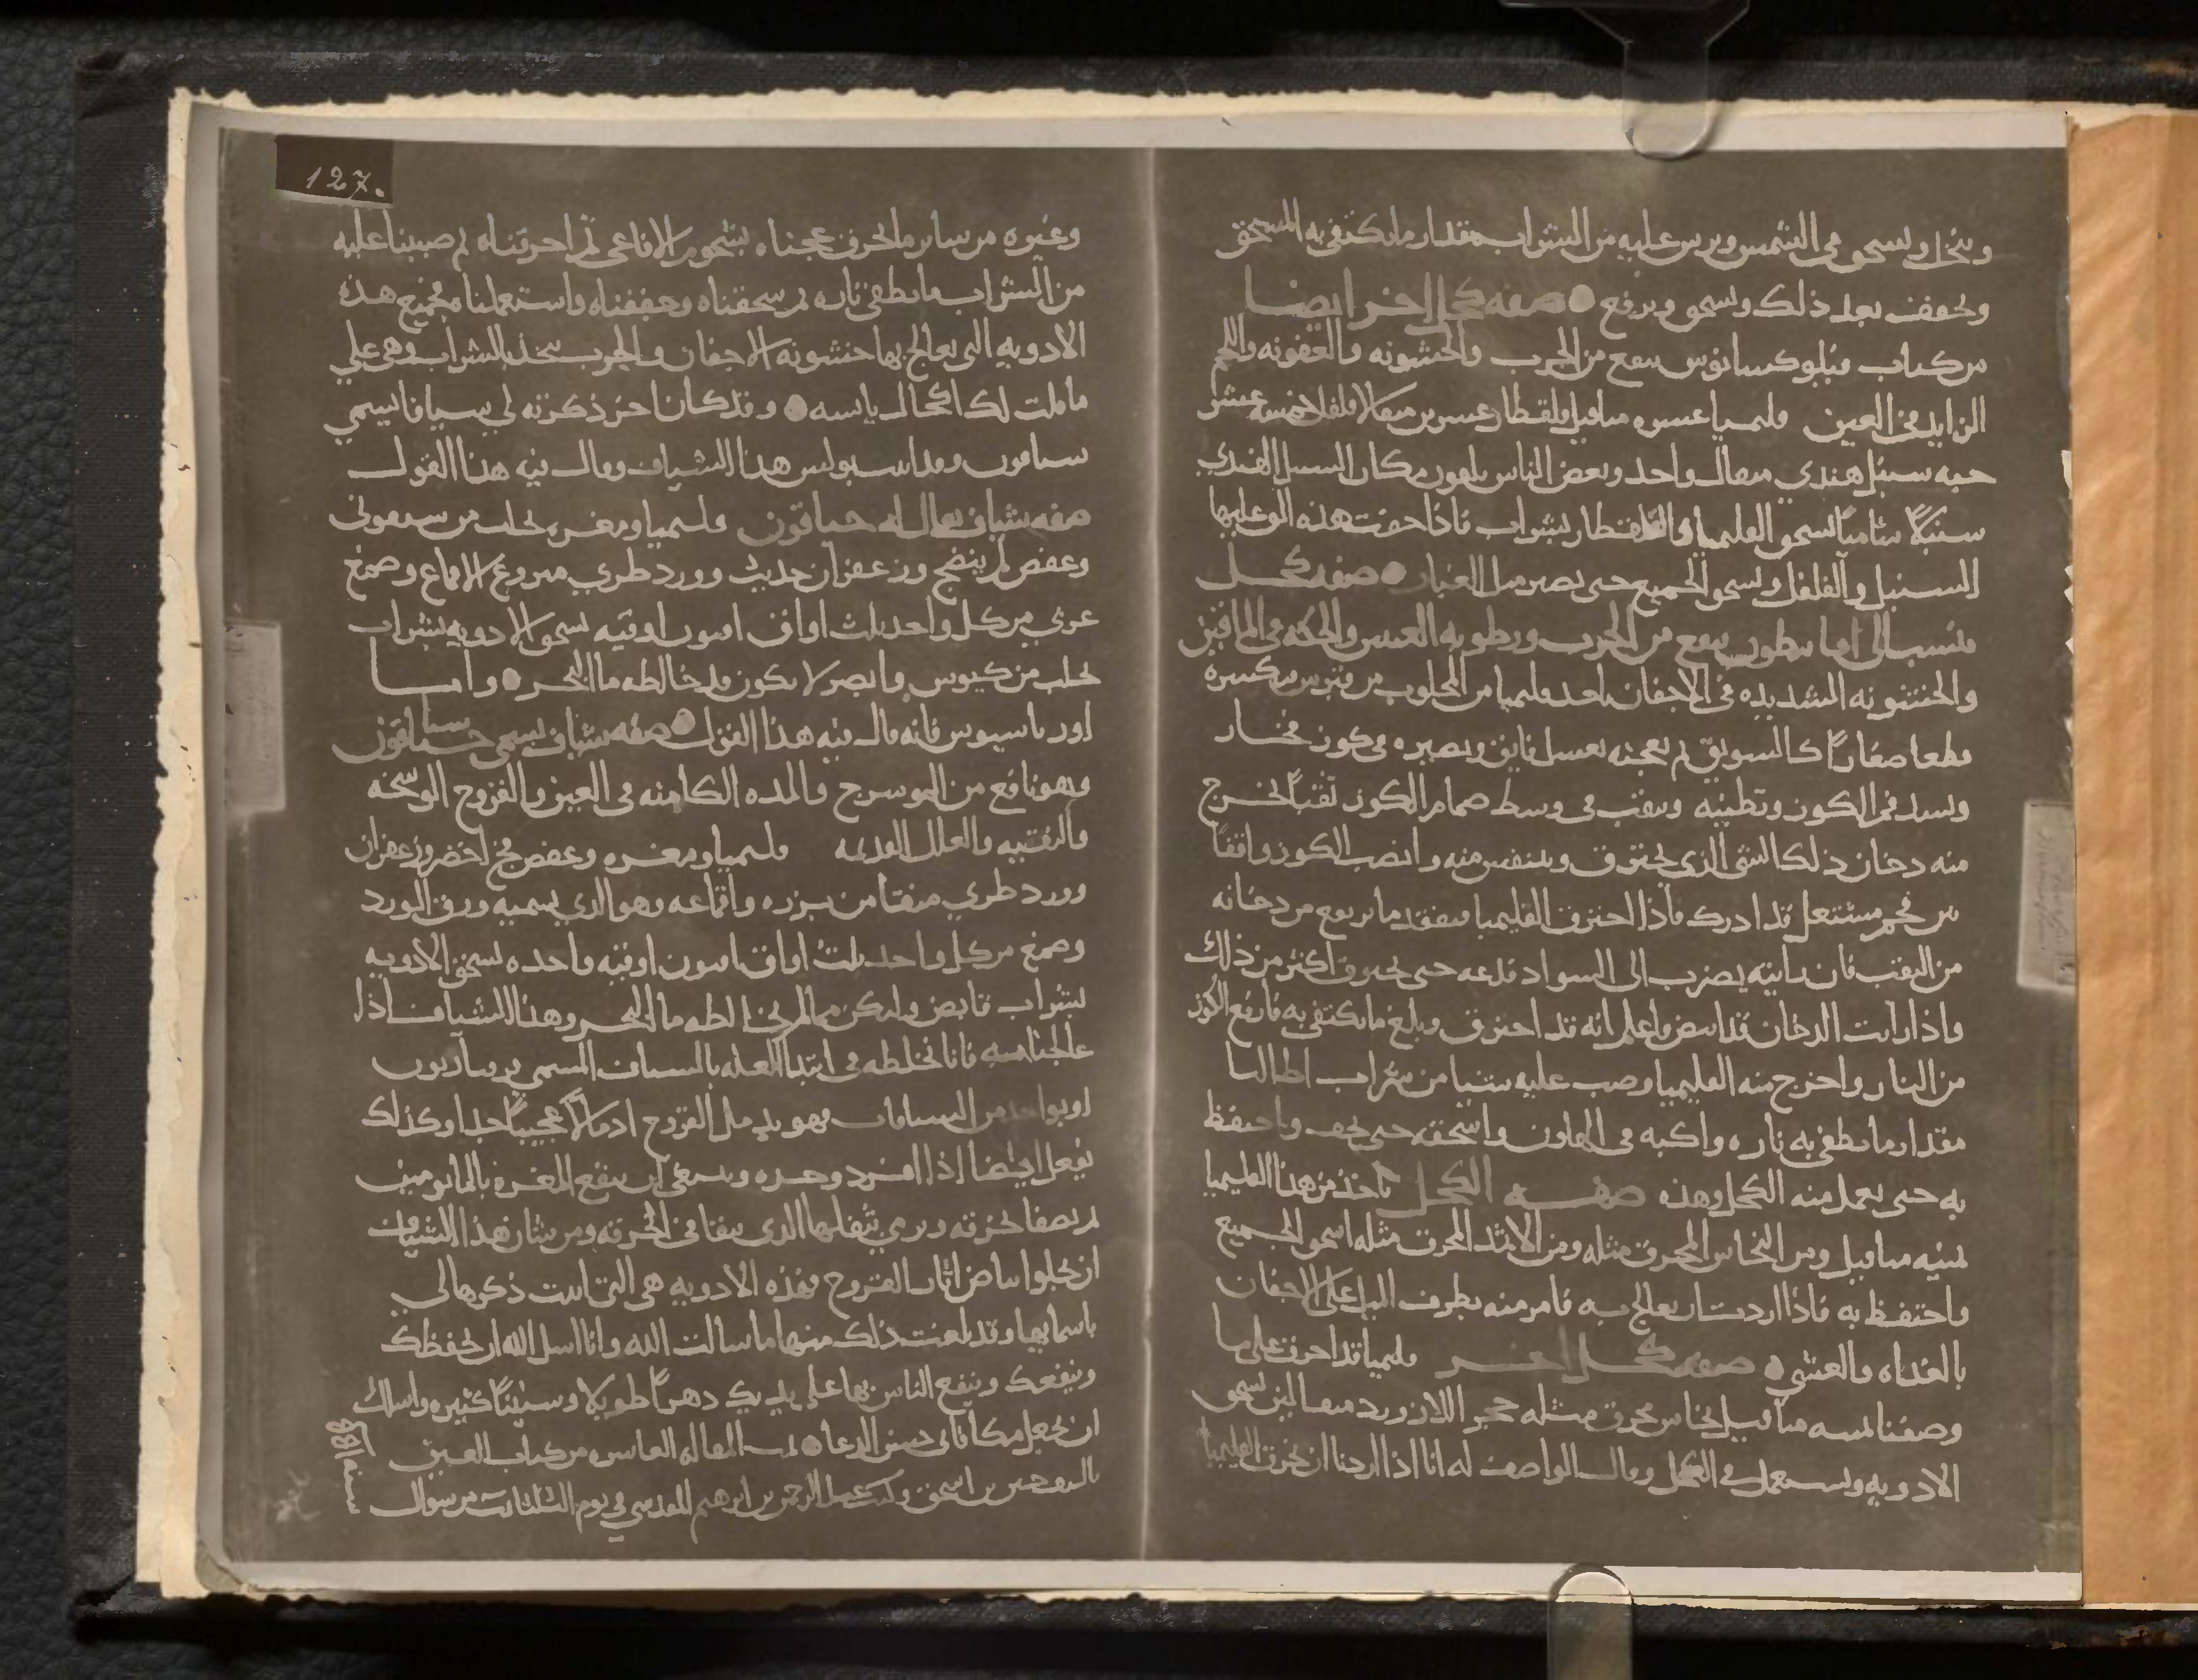 وينخل ويسحق في الشمس ويرس عليه من الشراب بمقدار ما يكتفي به المسحق
ويجفف بعد ذلك ويسحق ويرفع صفه كحل اخر ايضا
من كتاب ينفع من الجرب والخشونه والعفونه واللحم
الزايد في العين قليميا عشره مثاقيل قلقطار عشرين مثقالا فلفل خمسه عشر
حبه سنبل هندي مثقال واحد وبعض الناس يلقون مكان السنبل الهندي
سنبلا شاميا يسحق القليميا والقلقطار بشراب فاذا جفت هذه الق عليها
السنبل والفلفل ويسحق الجميع حتى يصير مثل الغبار صفه كحل
ينسب الى ينفع من الجرب ورطوبه العينين والحكه في الماقين
والخشونه الشديده في الاجفان ياخذ قليميا من المجلوب من قبرس يكسره
قطعا صغارا كالسويق ثم يعجنه بعسل فايق ويصيره في كوز فخار
ويسد فم الكوز وتطينه ويثقب في وسط صمام الكوز ثقبا لخرج
منه دخان ذلك الشي الذي يحترق ويتنفس منه وانصب الكوز واقفا
في جمر مشتعل قد ادرك فاذا احترق القليميا فتفقد ما يرتفع من دخانه
من الثقب فان رايته يضرب الى السواد فدعه حتى يحترق اكثر من ذلك
واذا رايت الدخان قد ابيض فاعلم انه قد احترق وبلغ ما يكتفي به فارفع الكوز
من النار واخرج منه القليميا وصب عليه شيا من شراب ايطاليا
مقدار ما يطفي به ناره واكبه في الهاون واسحقه حتى يجف واحتفظ
به حتى يعمل منه الكحل وهذه صفه الكحل ياخذ من هذا القليميا
ثمنيه مثاقيل ومن النحاس المحرق مثله ومن الاثمد المحرق مثله اسحق الجميع
واحتفظ به فاذا اردت ان يعالج به فامر منه بطرف الميل على الاجفان
بالغداه والعشي صفه كحل اخر قليميا قد احرق على ما
وصفنا ثمنيه مثاقيل نحاس محرق مثله حجر اللازورد مثقالين يسحق
الادويه ويستعمل في الكحل وقال الواصف له انا اذا اردنا ان نحرق القليميا
وغيره من ساير ما يحرق عجناه بشحوم الافاعي ثم احرقناه ثم صببنا عليه
من الشراب ما يطفي ناره ثم سحقناه وجففناه واستعملناه فجميع هذه
الادويه التي يعالج بها خشونه الاجفان والجرب يتخذ بالشراب وهي على
ما قلت لك اكحال يابسه وقد كان اخر ذكرته لي شيافا يسمى
هذا الشياف وقال فيه هذا القول
صفه شياف يقال له قليميا ومغره يجلب من
وعفص لم ينضج وزعفران حديث وورد طري منزوع الاقماع وصمغ
عربي من كل واحد ثلث اواق افيون اوقيه يسحق الادويه بشراب
يجلب من كيوس وابصر لا يكون قد خالطه ما البحر واما
فانه قال فيه هذا القول صفه شياف يسمى
وهو نافع من الموسرج والمده الكامنه في العين والقروح الوسخه
والنقيه والعلل القديمه قليميا ومغره وعفص فج اخضر وزعفران
وورد طري منقا من بزره واقماعه وهو الذي يسميه ورق الورد
وصمغ من كل واحد ثلث اواق افيون اوقيه واحده يسحق الادويه
بشراب قابض وليكن مما لم يخالطه ما البحر وهذا الشياف اذا
عالجنا به فانا نخلطه في ابتدا العله بالشياف المسمى
او بواحد من الشيافات فهو يدمل القروح ادمالا عجيبا جدا وكذلك
يفعل ايضا اذا افرد وحده وينبغي ان ينقع المغره بالما يومين
ثم يصفا بخرقه ويرمي بثفلها الذي يبقا في الخرقه ومن شان هذا الشياف
ان يجلوا بياض اثار القروح فهذه الادويه هي التي ذكرها لي
باسمايها وقد بلغت ذلك منها ما سالت الله وانا اسل الله ان يحفظك
وينفعك وينفع الناس بها على يديك دهرا طويلا وسنينا كثيره واسلك
ان تجعل مكافاتي حسن الدعا تمت المقاله العاشره من كتاب العين
تاليف حنين بن اسحق وكتب عبد الرحمن بن ابرهيم المقدسي في يوم الثلثا من شوال
127.